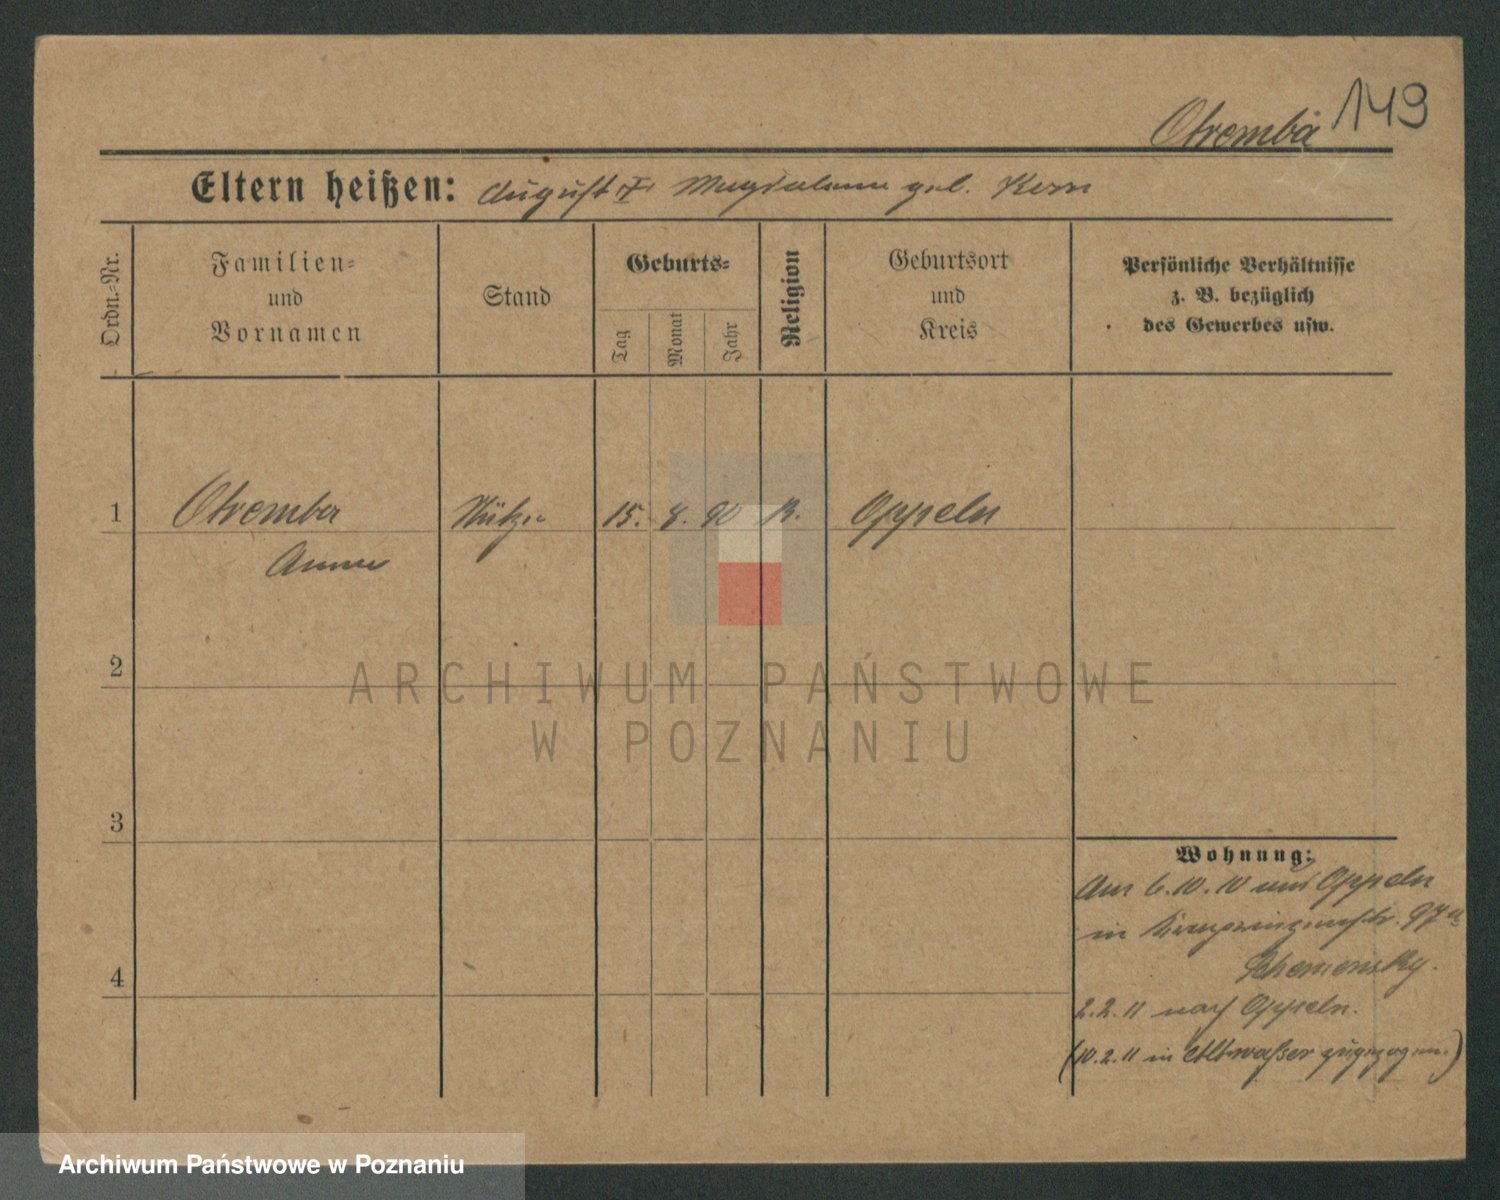 149
Otremba
Eltern heißen: August u. Magdalena geb. Kern
Ordn.-Nr.
Familien-
und
Vornamen
Stand
Geburts-
Tag
Monat
Jahr
Religion
Geburtsort
und
Kreis
Persönliche Verhältnisse
z. B. bezüglich
des Gewerbes usw.
1 Otremba Stütze 15. 90 K. Oppeln
Anna
2
3
4
Wohnung:
Am 6.10.10 aus Oppeln
in 97a
2.2.11 nach Oppeln.
(10.2.11 in Altwasser zugezogen.)
ARCHIWUM PAŃSTWOWE
W POZNANIU
Archiwum Państwowe w Poznaniu